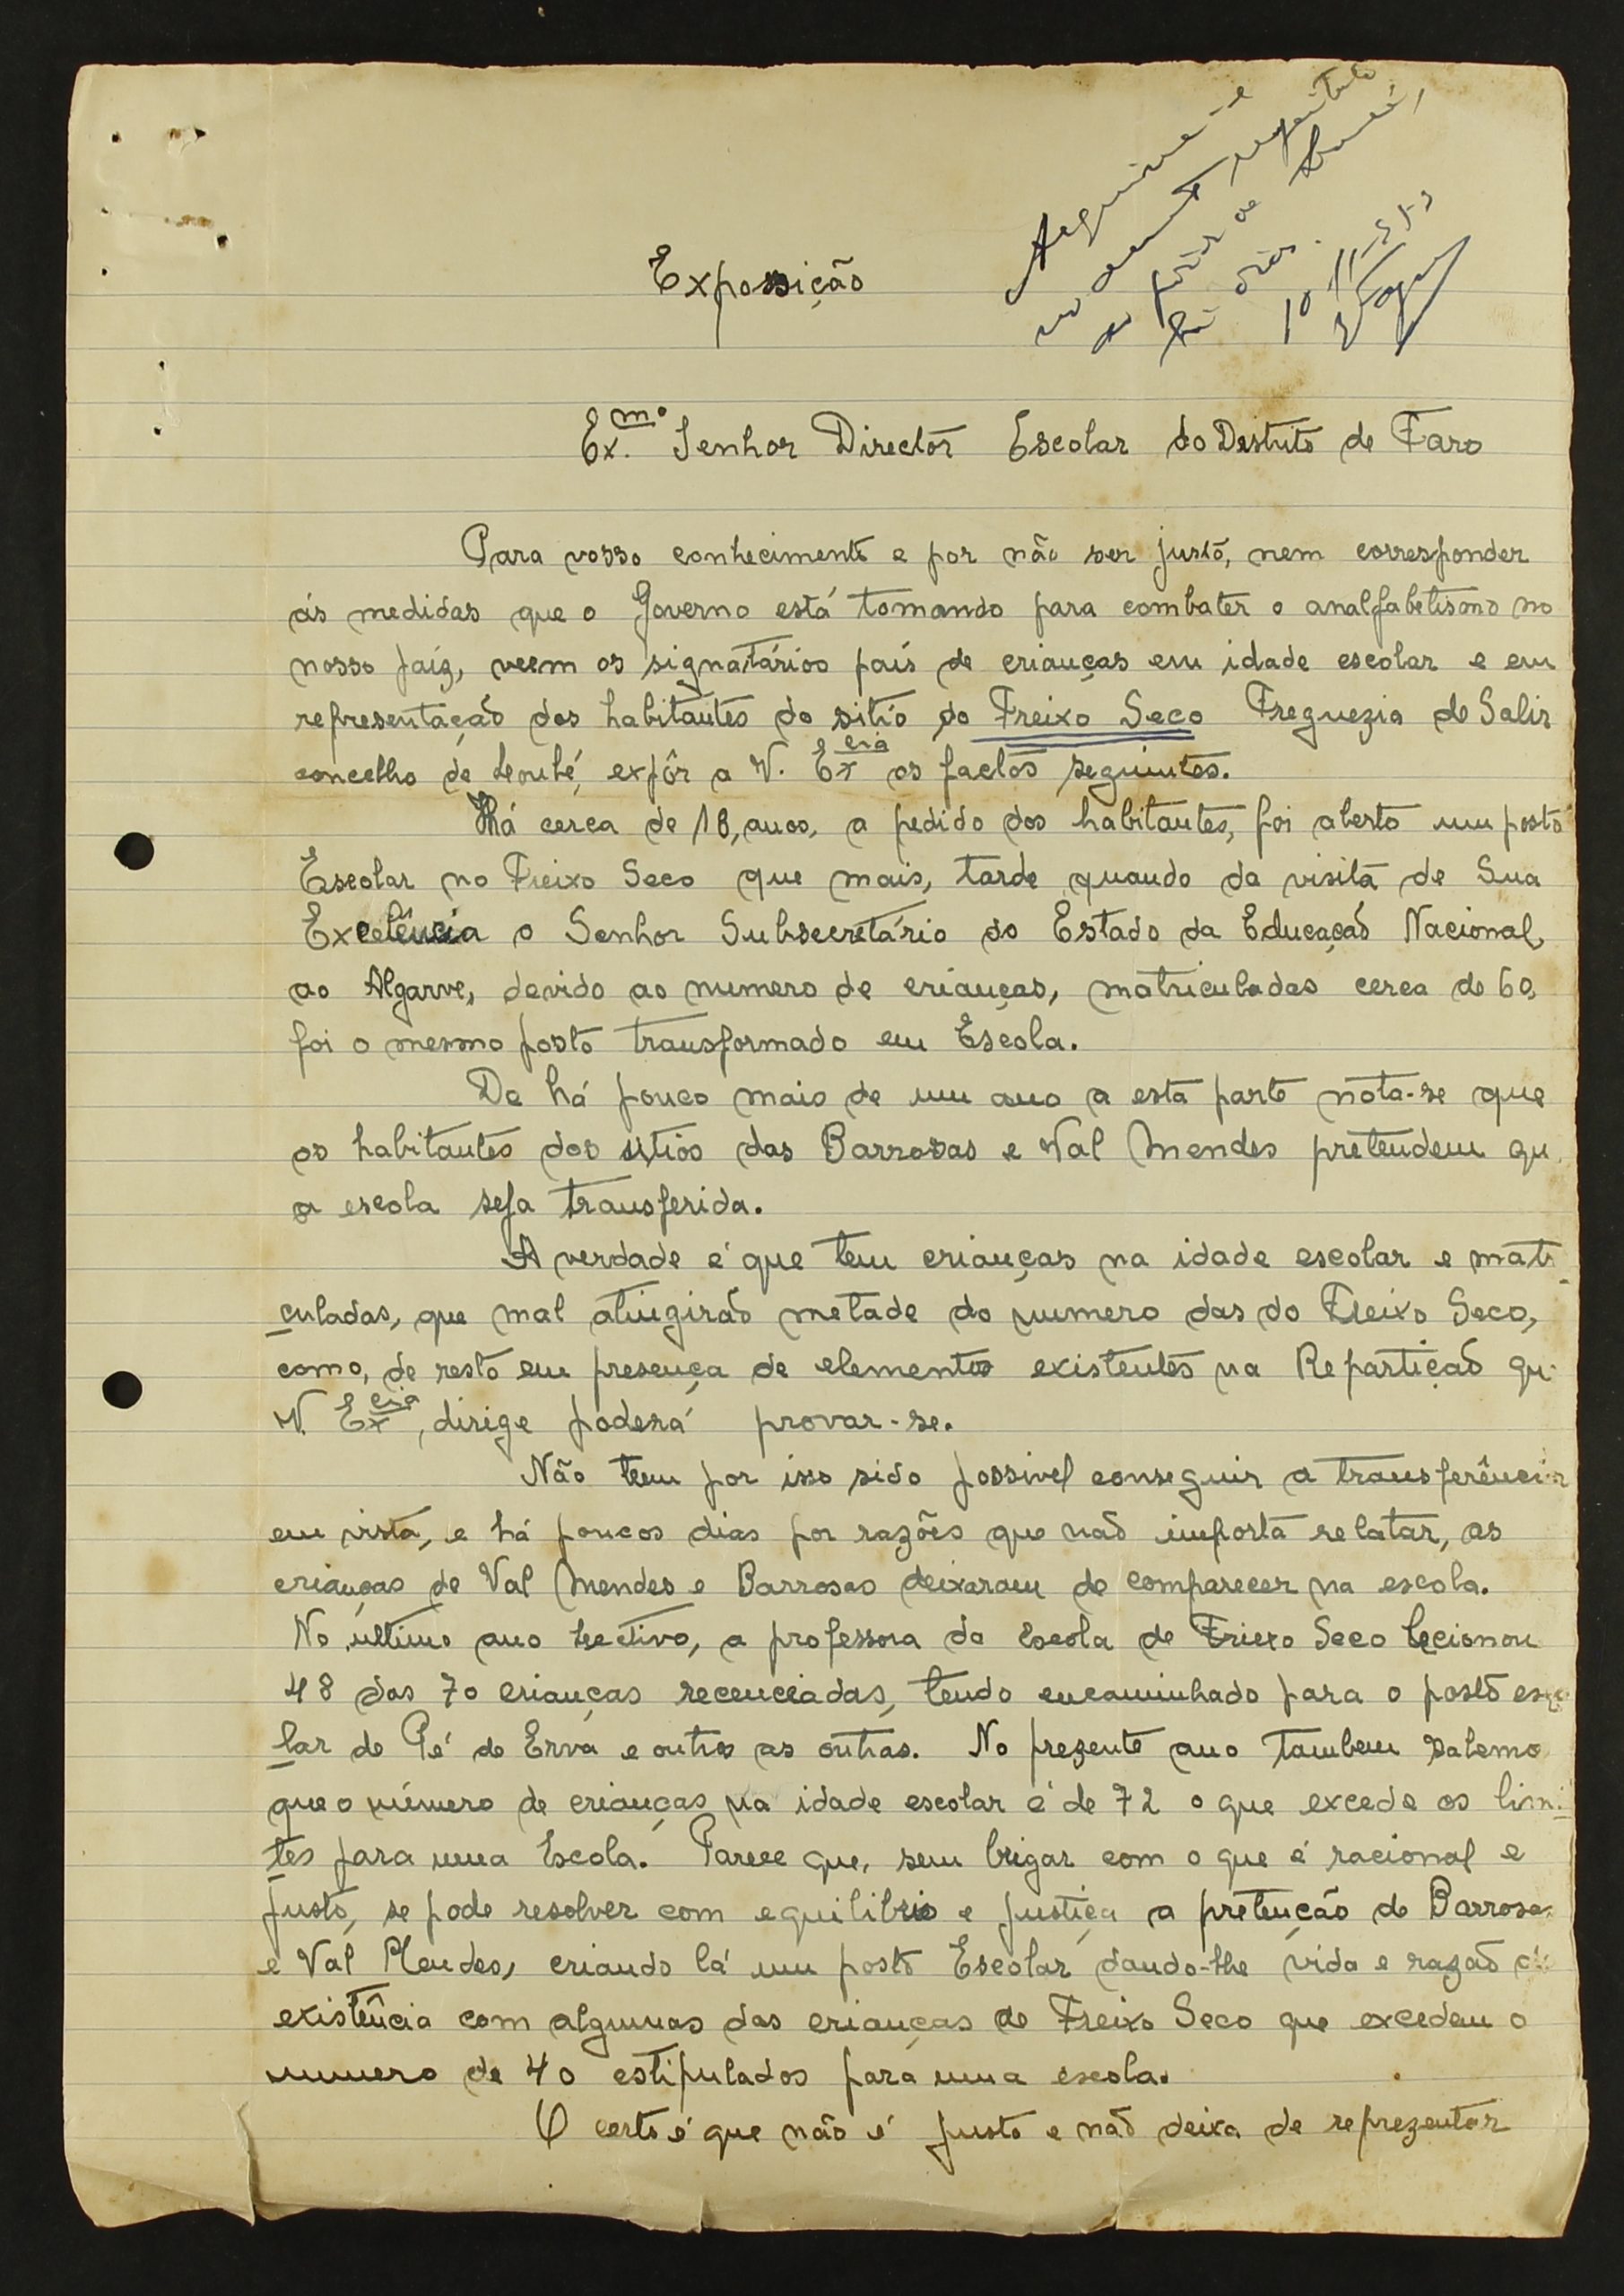 Exposição
Ex.mo Senhor Director Escolar do Destrito de Faro
Para vosso conhecimento e por não ser justo, nem corresponder
ás medidas que o Governo está tomando para combater o analfabetismo no
nosso paíz, veem os signatários pais de crianças em idade escolar e em
representação dos habitantes do sitio do Freixo Seco Freguezia de Salir
concelho de Loulé, expôr a V. Excia os factos seguintes.
Há cerca de 18, anos, a pedido dos habitantes, foi aberto um posto
Escolar no Freixo Seco que mais, tarde quando da visita de Sua
Excelência o Senhor Subsecretário do Estado da Educação Nacional,
ao Algarve, devido ao numero de crianças, matriculadas cerca de 60,
foi o mesmo posto transformado em Escola.
De há pouco mais de um ano a esta parte nota-se que
os habitantes dos sitios das Barrosas e Val Mendes pretendem qu
a escola seja transferida.
A verdade é que tem crianças na idade escolar e matri
culadas, que mal atingirão metade do numero das do Freixo Seco,
como, de resto em presença de elementos existentes na Repartição qu
V. Excia, dirige poderá provar-se.
Não tem por isso sido possivel conseguir a transferência
em vista, e há poucos dias por razões que não importa relatar, as
crianças de Val Mendes e Barrosas deixaram de comparecer na escola.
No ultimo ano lectivo, a professora da Escola de Friexo Seco lecionou
48 das 70 crianças recenceadas, tendo encaminhado para o posto esco
lar de Pé de Erva e outros as outras. No prezente ano tambem sabemos
que o número de crianças na idade escolar é de 72 o que excede os limi-
tes para uma Escola. Parece que, sem brigar com o que é racional e
justo, se pode resolver com equilibrio e justiça a pretenção de Barrosas
e Val Mendes, criando lá um posto Escolar dando-lhe vida e razão de
existência com algumas das crianças de Freixo Seco que excedem o
numero de 40 estipulados para uma escola.
O certo é que não é justo e não deixa de reprezentar